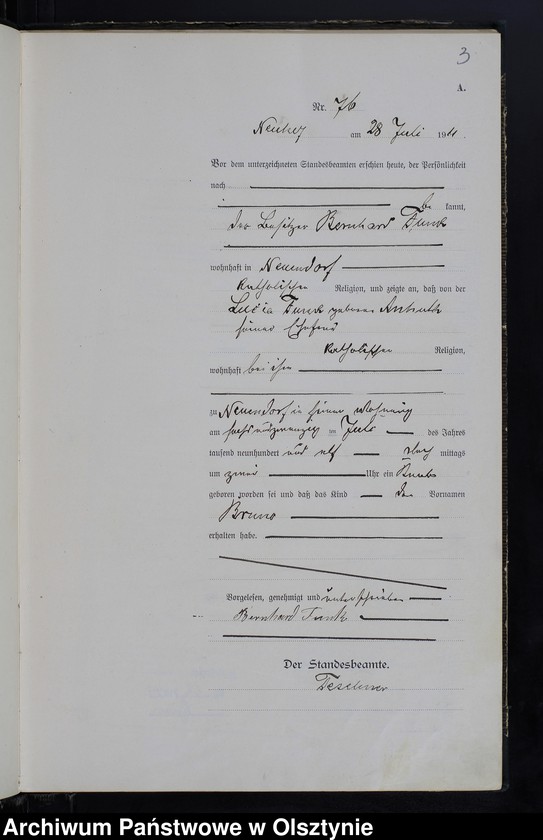 3
A.
Nr. 76
am 28 Juli 1911.
Vor dem unterzeichneten Standesbeamten erschien heute, der Persönlichkeit
nach
be kannt,
der Besitzer Bernhard Funk
wohnhaft in Neuendorf
katholischer Religion, und zeigte an, daß von der
Lucia Funk geborene
seiner Ehefrau
katholischer Religion,
wohnhaft bei ihm
zu Neuendorf in seiner Wohnung
am sechsundzwanzig ten Juli des Jahres
tausend neunhundert und elf Nach mittags
um zwei Uhr ein Knabe
geboren worden sei und daß das Kind den Vornamen
Bruno
erhalten habe.
Vorgelesen, genehmigt und unterschrieben
Bernhard Funk
Der Standesbeamte.
Teschner
Archiwum Państwowe w Olsztynie